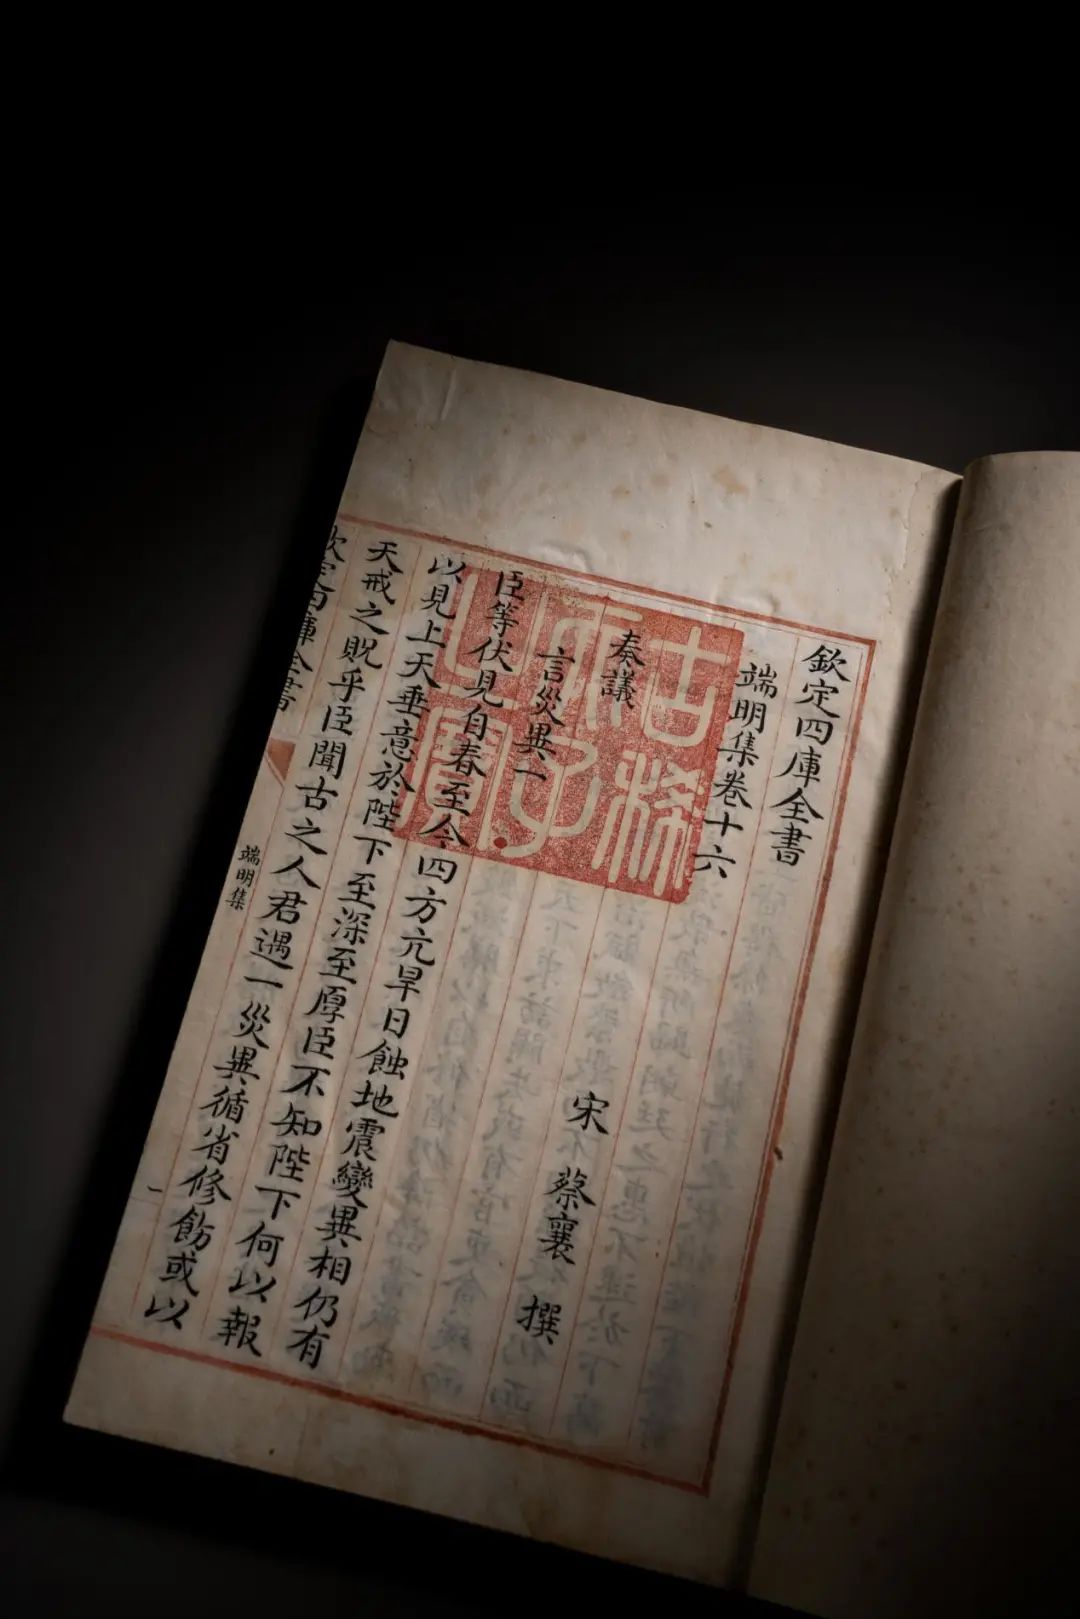 欽定四庫全書
端明集卷十六
宋 蔡襄 撰
奏議
言災異一
臣等伏見自春至今四方亢旱日蝕地震變異相仍有
以見上天垂意於陛下至深至厚臣不知陛下何以報
天戒之貺乎臣聞古之人君遇一災異循省修飭或以
欽定四庫全書
端明集
一
古稀
天子
之寶